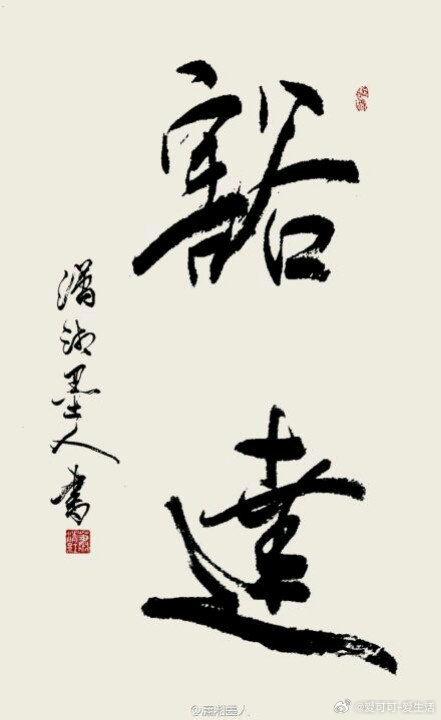 豁達
瀟湘墨人書
@瀟湘墨人
@爱可可-爱生活